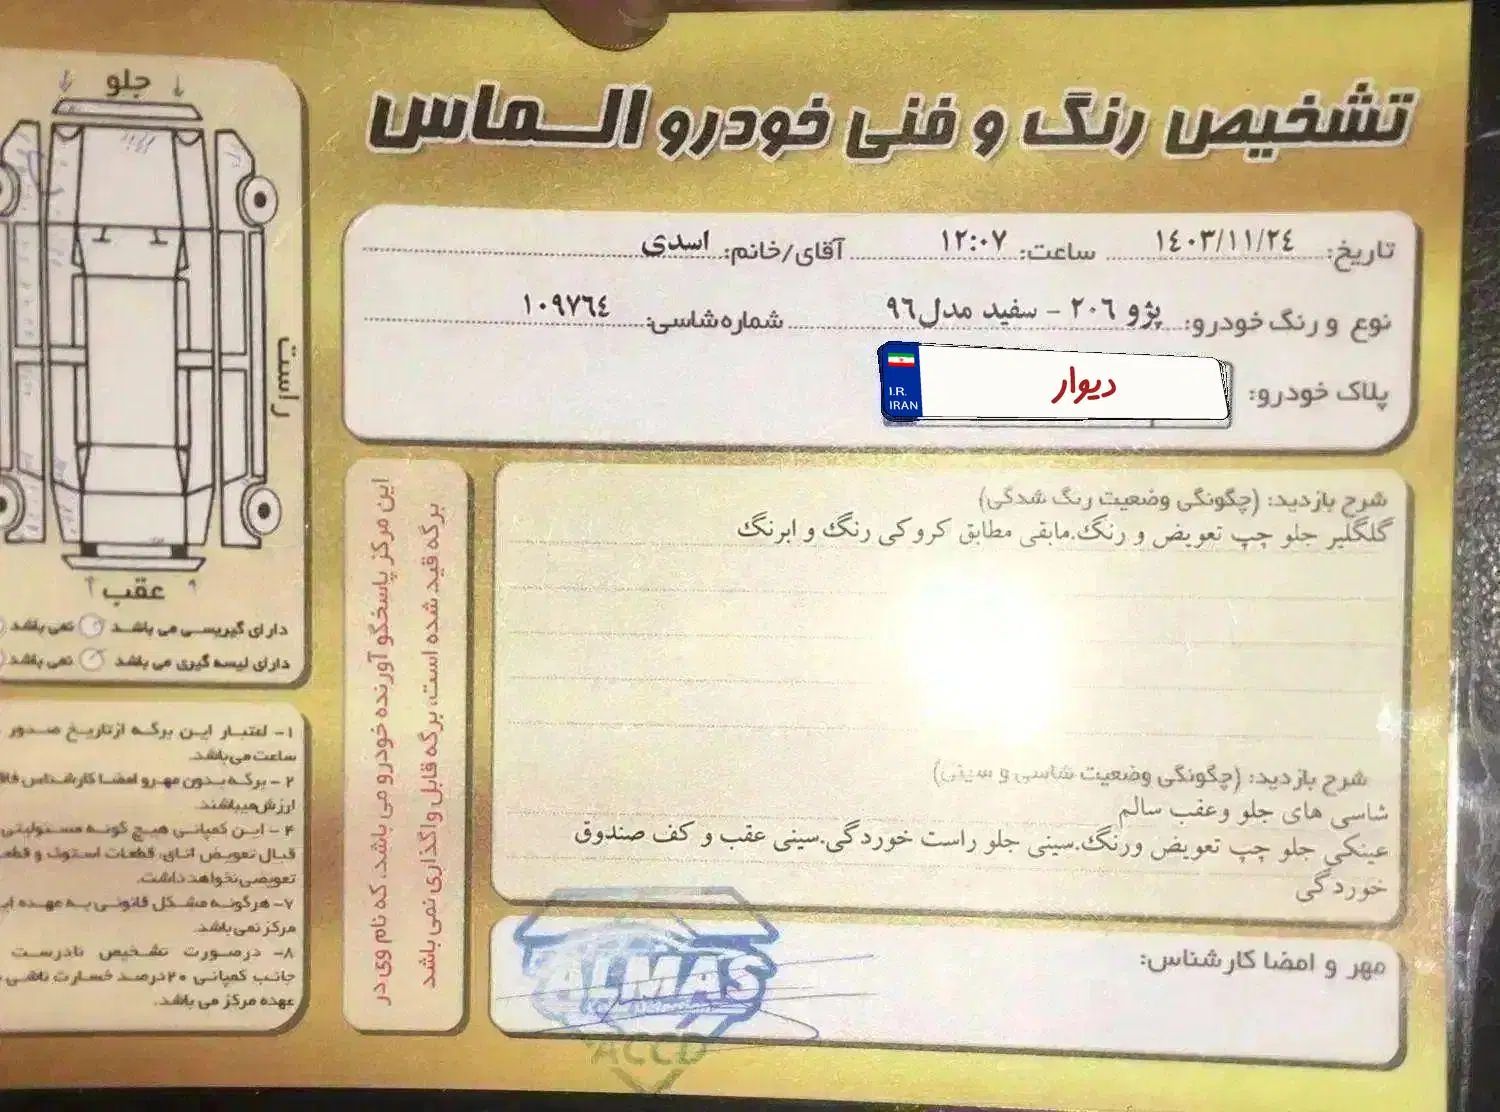 تشخیص رنگ و فنی خودرو الـماس
تاریخ: ۱٤۰۳/۱۱/۲٤ ساعت: ۱۲:۰۷ آقای/خانم: اسدی
نوع و رنگ خودرو: پژو ۲۰٦ - سفید مدل۹٦ شماره شاسی: ۱۰۹۷٦٤
پلاک خودرو:
I.R.
IRAN
دیوار
شرح بازدید: (چگونگی وضعیت رنگ شدگی)
گلگلیر جلو چپ تعویض و رنگ.مابقی مطابق کروکی رنگ و ابرنگ
شرح بازدید: (چگونگی وضعیت شاسی و سینی)
شاسی های جلو وعقب سالم
عینکی جلو چپ تعویض ورنگ.سینی جلو راست خوردگی.سینی عقب و کف صندوق
خوردگی
مهر و امضا کارشناس:
ALMAS
ACCD
این مرکز پاسخگو آورنده خودرو می باشد، که نام وی در
برگه قید شده است، برگه قابل واگذاری نمی باشد
جلو
راست
عقب
دارای گیریسی می باشد نمی باشد
دارای لیسه گیری می باشد نمی باشد
۱- اعتبار این برگه از تاریخ صدور
ساعت می باشد.
۲- برگه بدون مهر و امضا کارشناس
ارزش میباشند.
۴- این کمپانی هیچ گونه مسئولیتی
قبال تعویض اتاق، قطعات استوک و
تعویضی نخواهد داشت.
۷- هرگونه مشکل قانونی به عهده
مرکز نمی باشد.
۸- درصورت تشخیص نادرست
جانب کمپانی ۲۰درصد خسارت ناشی
عهده مرکز می باشد.